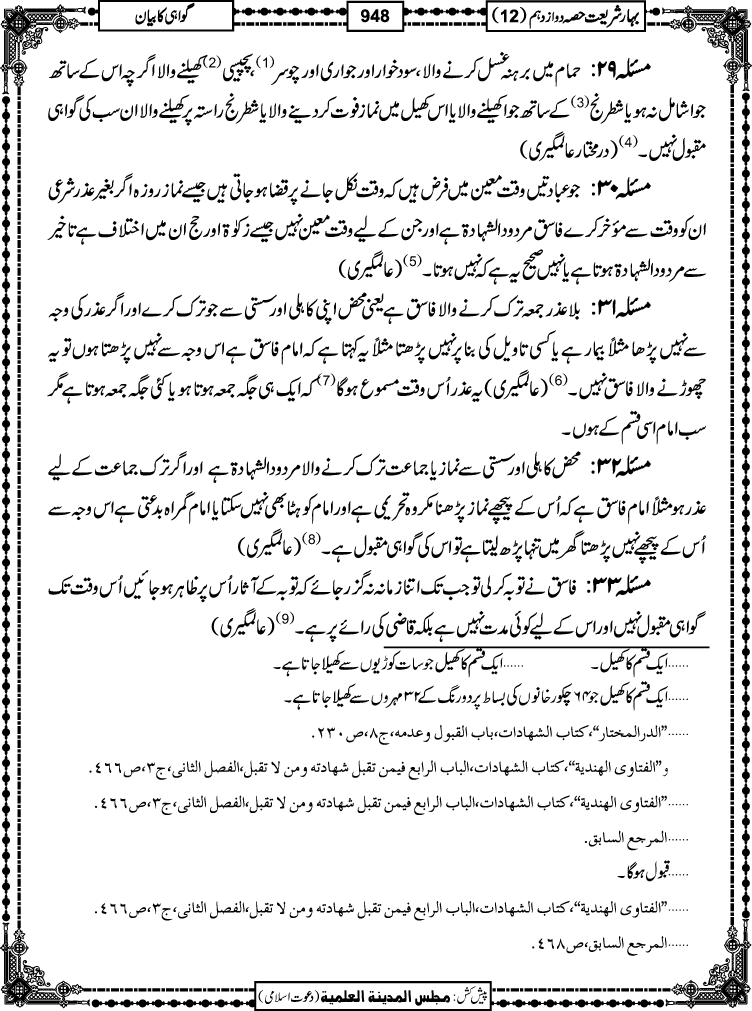 بہار شریعت حصہ دوازدہم (12)
948
گواہی کا بیان
مسئلہ ۲۹: حمام میں برہنہ غسل کرنے والا، سود خوار اور جواری اور چوسر(1)، پچپیسی(2) کھیلنے والا اگرچہ اس کے ساتھ
جوا شامل نہ ہو یا شطرنج(3) کے ساتھ جوا کھیلنے والا یا اس کھیل میں نماز فوت کردینے والا یا شطرنج راستہ پر کھیلنے والا ان سب کی گواہی
مقبول نہیں۔(4) (درمختار عالمگیری)
مسئلہ ۳۰: جو عبادتیں وقت معین میں فرض ہیں کہ وقت نکل جانے پر قضا ہو جاتی ہیں جیسے نماز روزہ اگر بغیر عذر شرعی
ان کو وقت سے مؤخر کرے فاسق مردود الشہادۃ ہے اور جن کے لیے وقت معین نہیں جیسے زکوٰۃ اور حج ان میں اختلاف ہے تاخیر
سے مردود الشہادۃ ہوتا ہے یا نہیں صحیح یہ ہے کہ نہیں ہوتا۔(5) (عالمگیری)
مسئلہ ۳۱: بلا عذر جمعہ ترک کرنے والا فاسق ہے یعنی محض اپنی کاہلی اور سستی سے جو ترک کرے اور اگر عذر کی وجہ
سے نہیں پڑھا مثلاً بیمار ہے یا کسی تاویل کی بنا پر نہیں پڑھتا مثلاً یہ کہتا ہے کہ امام فاسق ہے اس وجہ سے نہیں پڑھتا ہوں تو یہ
چھوڑنے والا فاسق نہیں۔(6) (عالمگیری) یہ عذر اُس وقت مسموع ہوگا(7) کہ ایک ہی جگہ جمعہ ہوتا ہو یا کئی جگہ جمعہ ہوتا ہے مگر
سب امام اسی قسم کے ہوں۔
مسئلہ ۳۲: محض کاہلی اور سستی سے نماز یا جماعت ترک کرنے والا مردود الشہادۃ ہے اور اگر ترک جماعت کے لیے
عذر ہو مثلاً امام فاسق ہے کہ اُس کے پیچھے نماز پڑھنا مکروہ تحریمی ہے اور امام کو ہٹا بھی نہیں سکتا یا امام گمراہ بدعتی ہے اس وجہ سے
اُس کے پیچھے نہیں پڑھتا گھر میں تنہا پڑھ لیتا ہے تو اس کی گواہی مقبول ہے۔(8) (عالمگیری)
مسئلہ ۳۳: فاسق نے توبہ کرلی تو جب تک اتنا زمانہ نہ گزر جائے کہ توبہ کے آثار اُس پر ظاہر ہو جائیں اُس وقت تک
گواہی مقبول نہیں اور اس کے لیے کوئی مدت نہیں ہے بلکہ قاضی کی رائے پر ہے۔(9) (عالمگیری)
......ایک قسم کا کھیل۔ ......ایک قسم کا کھیل جو سات کوڑیوں سے کھیلا جاتا ہے۔
......ایک قسم کا کھیل جو ۶۴ چکور خانوں کی بساط پر دو رنگ کے ۳۲ مہروں سے کھیلا جاتا ہے۔
......”الدرالمختار“، كتاب الشهادات، باب القبول وعدمه، ج٨، ص٢٣٠.
و”الفتاوى الهندية“، كتاب الشهادات، الباب الرابع فيمن تقبل شهادته ومن لا تقبل، الفصل الثانى، ج٣، ص٤٦٦.
......”الفتاوى الهندية“، كتاب الشهادات، الباب الرابع فيمن تقبل شهادته ومن لا تقبل، الفصل الثانى، ج٣، ص٤٦٦.
......المرجع السابق.
......قبول ہوگا۔
......”الفتاوى الهندية“، كتاب الشهادات، الباب الرابع فيمن تقبل شهادته ومن لا تقبل، الفصل الثانى، ج٣، ص٤٦٦.
......المرجع السابق، ص٤٦٨.
پیش کش: مجلس المدینۃ العلمیۃ (دعوت اسلامی)